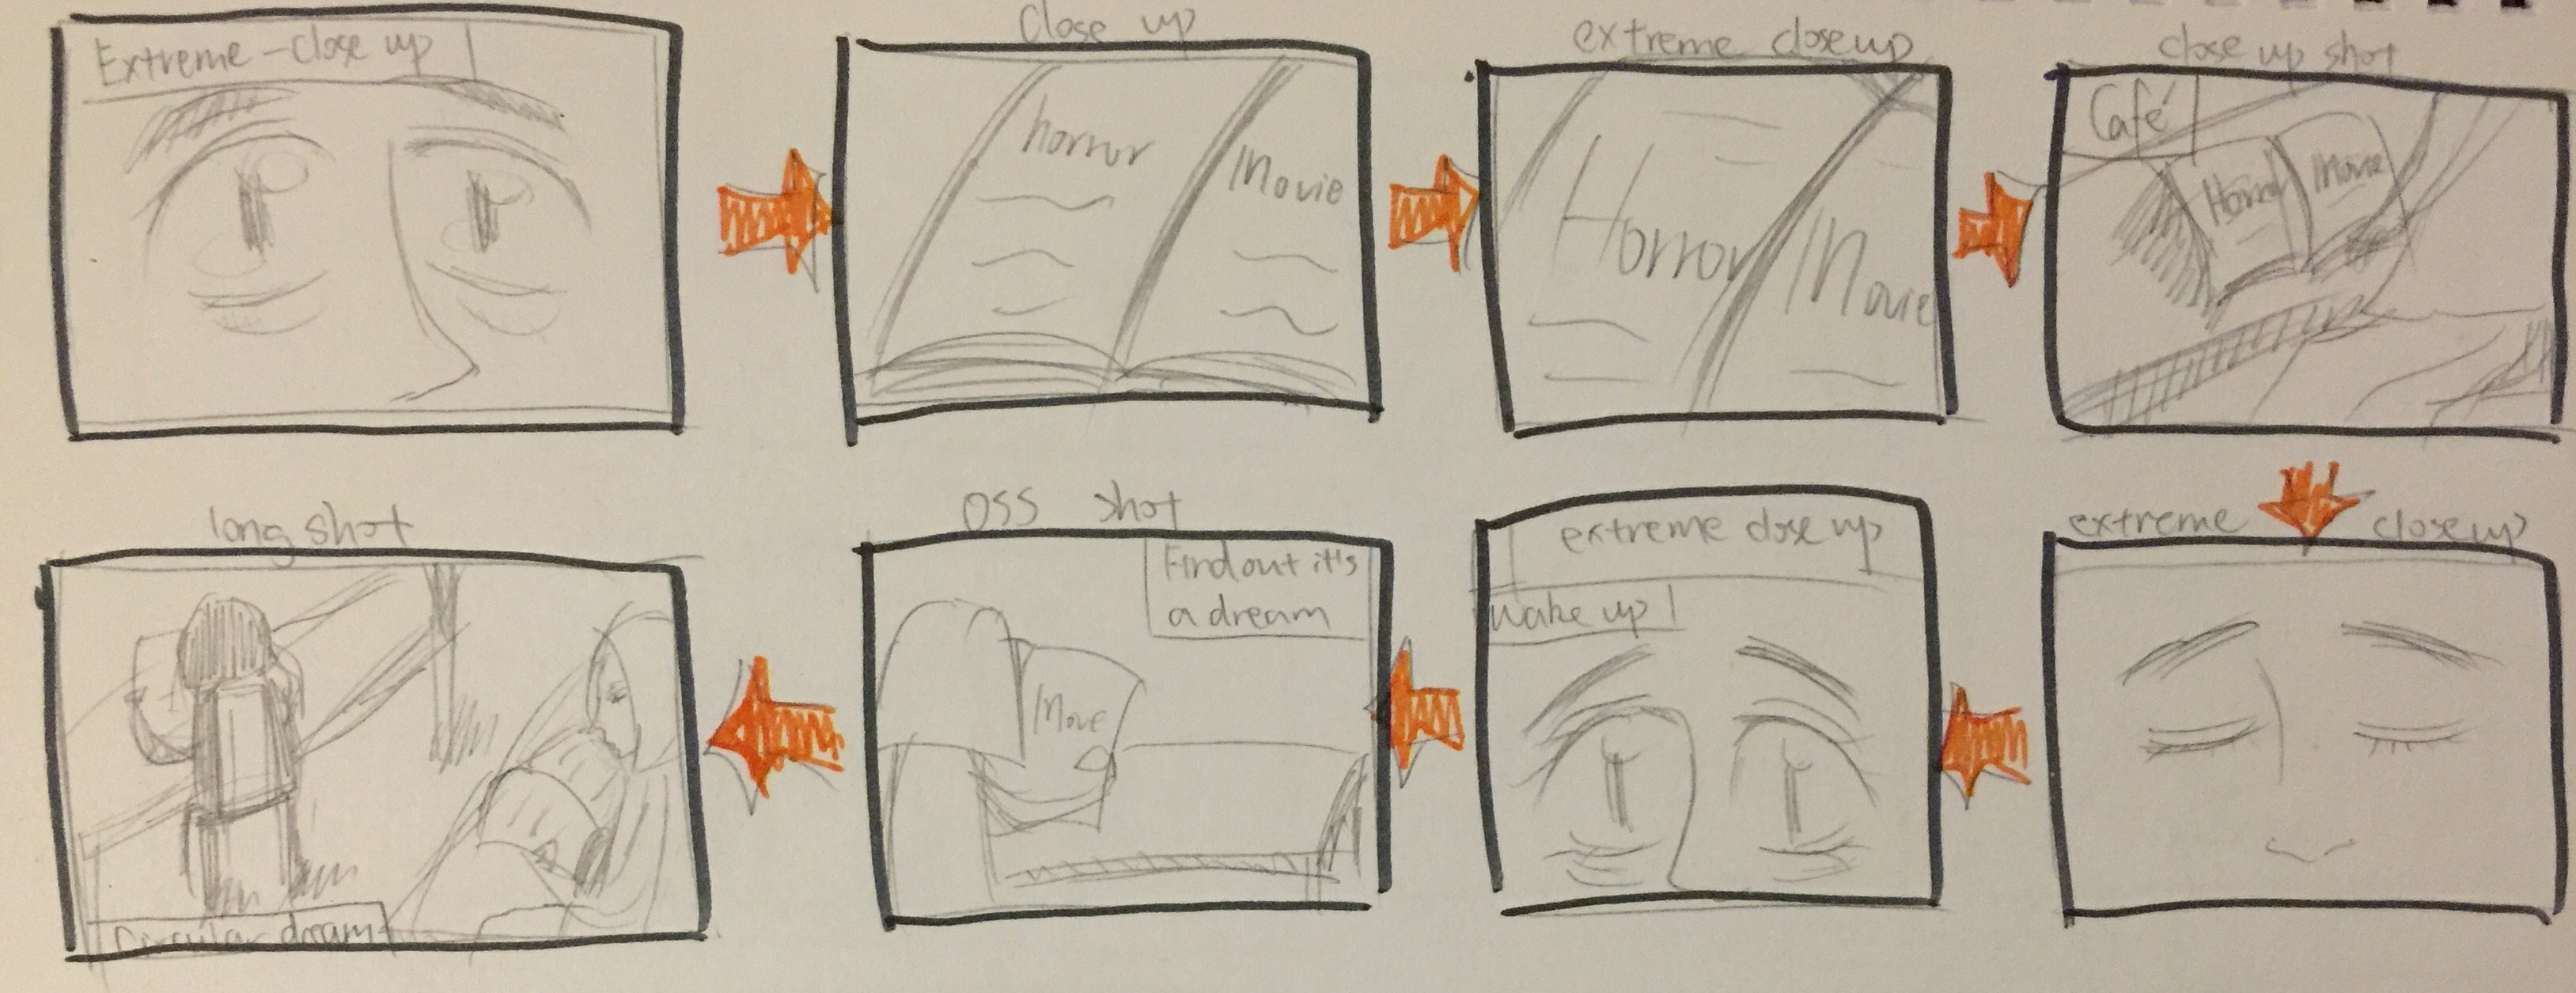 Extreme-close up
close up
horror
Movie
extreme closeup
Horror
Movie
close up shot
Café
Horror
Movie
extreme closeup
extreme close up
Wake up
OSS shot
Find out it's
a dream
Move
long shot
circular dream